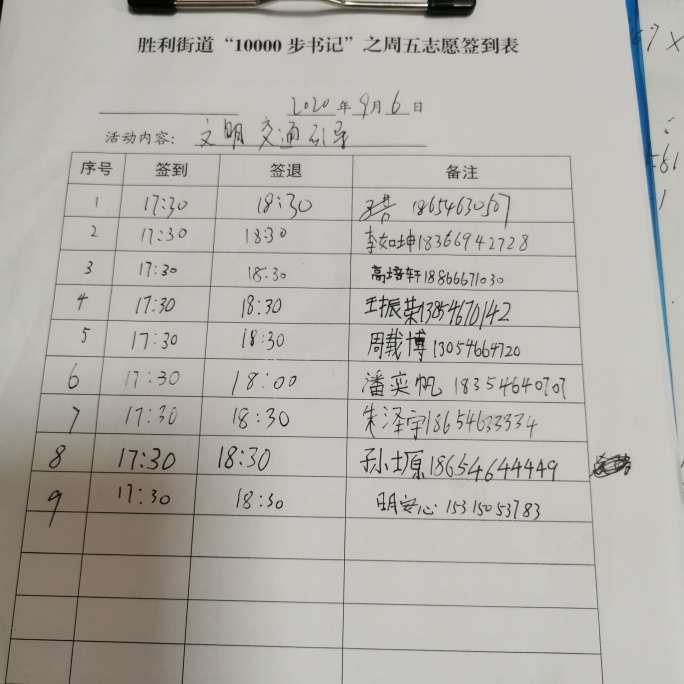 胜利街道“10000步书记”之周五志愿签到表
2020年9月6日
活动内容：文明交通引导
序号 签到 签退 备注
1 17:30 18:30 18654630507
2 17:30 18:30 李如坤18366942728
3 17:30 18:30 高培轩18866671030
4 17:30 18:30 王振荣13854670142
5 17:30 18:30 周载博13054664720
6 17:30 18:00 潘奕帆 18354640707
7 17:30 18:30 朱泽宇18654633334
8 17:30 18:30 孙士原18654644449
9 17:30 18:30 明安心 15315053783